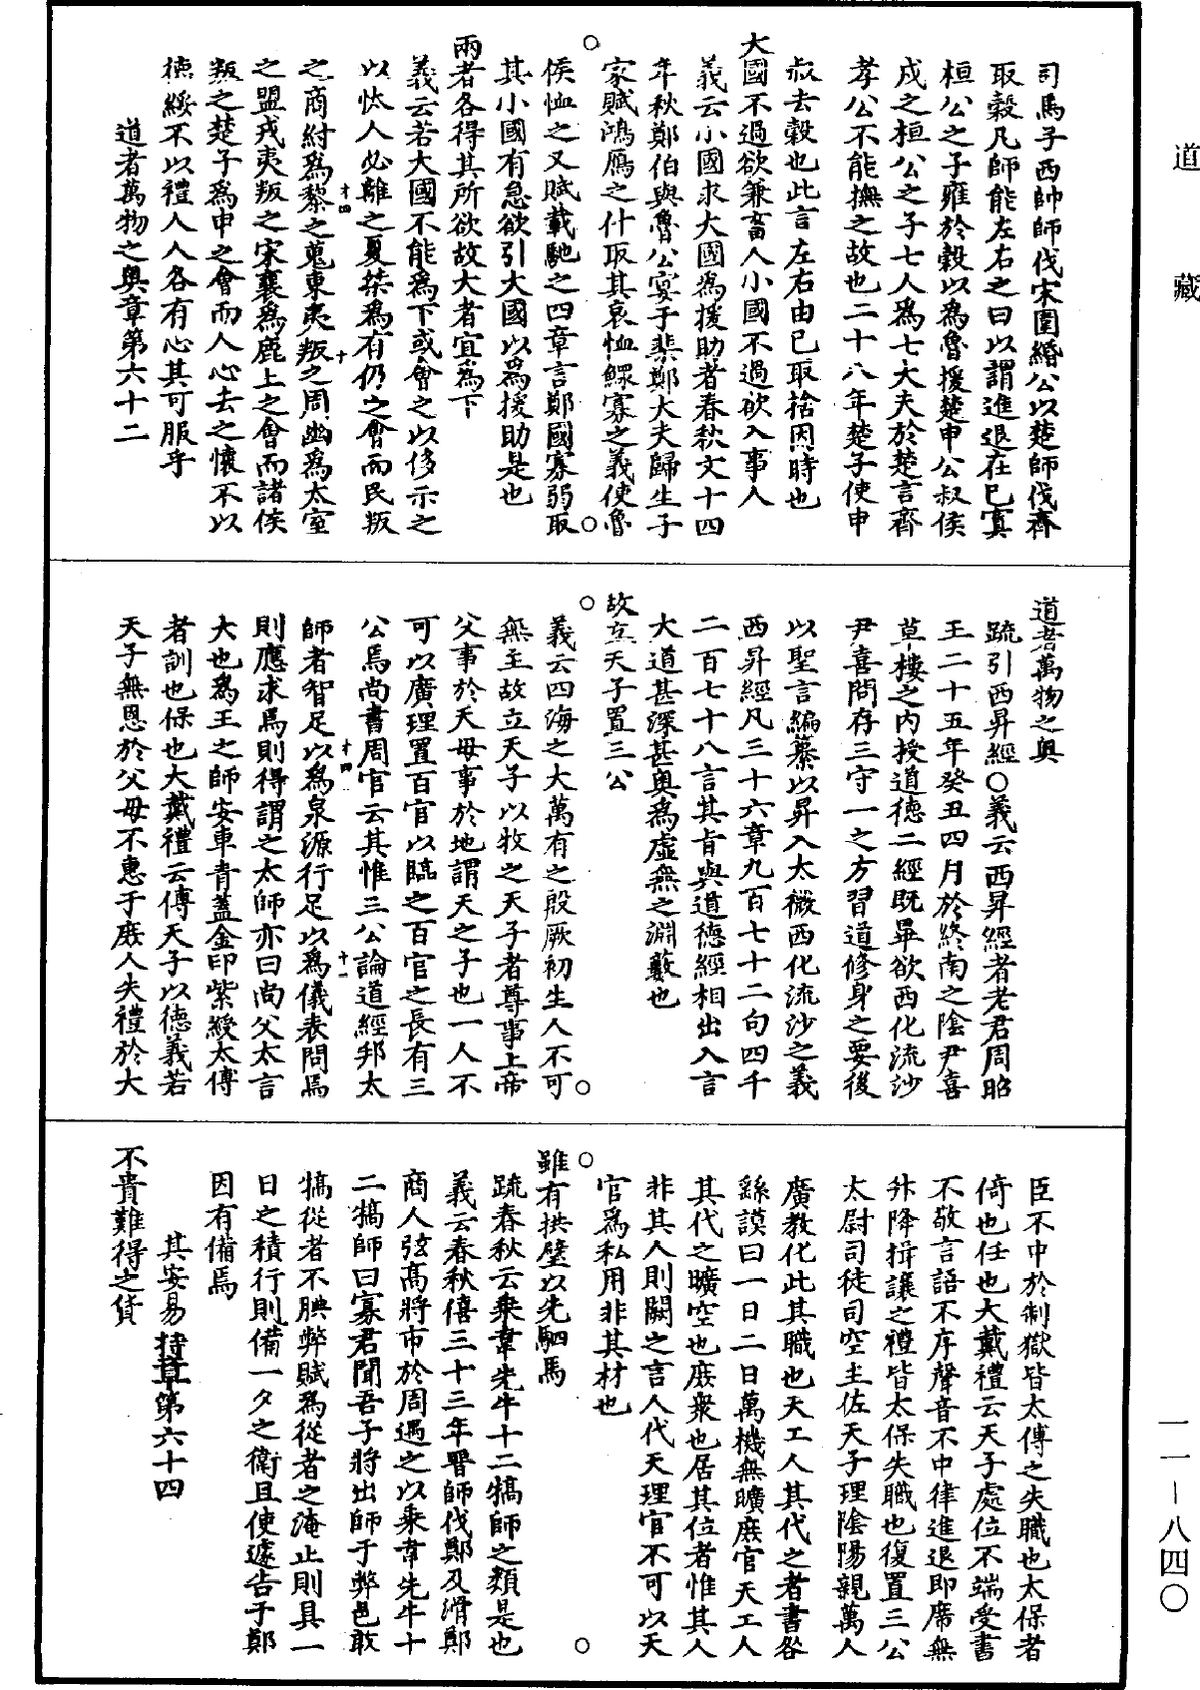 道藏
司馬子西帥師伐宋圍緡公以楚師伐齊
取穀凡師能左右之曰以謂進退在已寘
桓公之子雍於穀以為魯援楚申公叔侯
戍之桓公之子七人為七大夫於楚言齊
孝公不能撫之故也二十八年楚子使申
叔去穀也此言左右由已取捨因時也
大國不過欲兼畜人小國不過欲入事人
義云小國求大國為援助者春秋文十四
年秋鄭伯與魯公宴于棐鄭大夫歸生子
家賦鴻鴈之什取其哀恤鰥寡之義使魯
侯恤之又賦載馳之四章言鄭國寡弱取
其小國有急欲引大國以為援助是也
兩者各得其所欲故大者宜為下
義云若大國不能為下或會之以侈示之
以忲人必離之夏桀為有仍之會而民叛
之商紂為黎之蒐東夷叛之周幽為太室
之盟戎夷叛之宋襄為鹿上之會而諸侯
叛之楚子為申之會而人心去之懷不以
德綏不以禮人人各有心其可服乎
道者萬物之奥章第六十二
道者萬物之奥
疏引西昇經○義云西昇經者老君周昭
王二十五年癸丑四月於終南之陰尹喜
草樓之内授道德二經既畢欲西化流沙
尹喜問存三守一之方習道修身之要後
以聖言編纂以昇入太微西化流沙之義
西昇經凡三十六章九百七十二句四千
二百七十八言其旨與道德經相出入言
大道甚深甚奥為虛無之淵藪也
故立天子置三公
義云四海之大萬有之殷厥初生人不可
無主故立天子以牧之天子者尊事上帝
父事於天母事於地謂天之子也一人不
可以廣理置百官以臨之百官之長有三
公焉尚書周官云其惟三公論道經邦太
師者智足以為泉源行足以為儀表問焉
則應求焉則得謂之太師亦曰尚父太言
大也為王之師安車青蓋金印紫綬太傅
者訓也保也大戴禮云傅天子以德義若
天子無恩於父母不惠于庶人失禮於大
臣不中於制獄皆太傅之失職也太保者
倚也任也大戴禮云天子處位不端受書
不敬言語不序聲音不中律進退即席無
升降揖讓之禮皆太保失職也復置三公
太尉司徒司空主佐天子理陰陽親萬人
廣教化此其職也天工人其代之者書咎
繇謨曰一日二日萬機無曠庶官天工人
其代之曠空也庶衆也居其位者惟其人
非其人則闕之言人代天理官不可以天
官為私用非其材也
雖有拱璧以先駟馬
疏春秋云乘韋先牛十二犒師之類是也
義云春秋僖三十三年晉師伐鄭及滑鄭
商人弦高將市於周遇之以乘韋先牛十
二犒師曰寡君聞吾子將出師于弊邑敢
犒從者不腆弊賦為從者之淹止則具一
日之積行則備一夕之衛且使遽告于鄭
因有備焉
其安易持章第六十四
不貴難得之貨
一一—八四〇